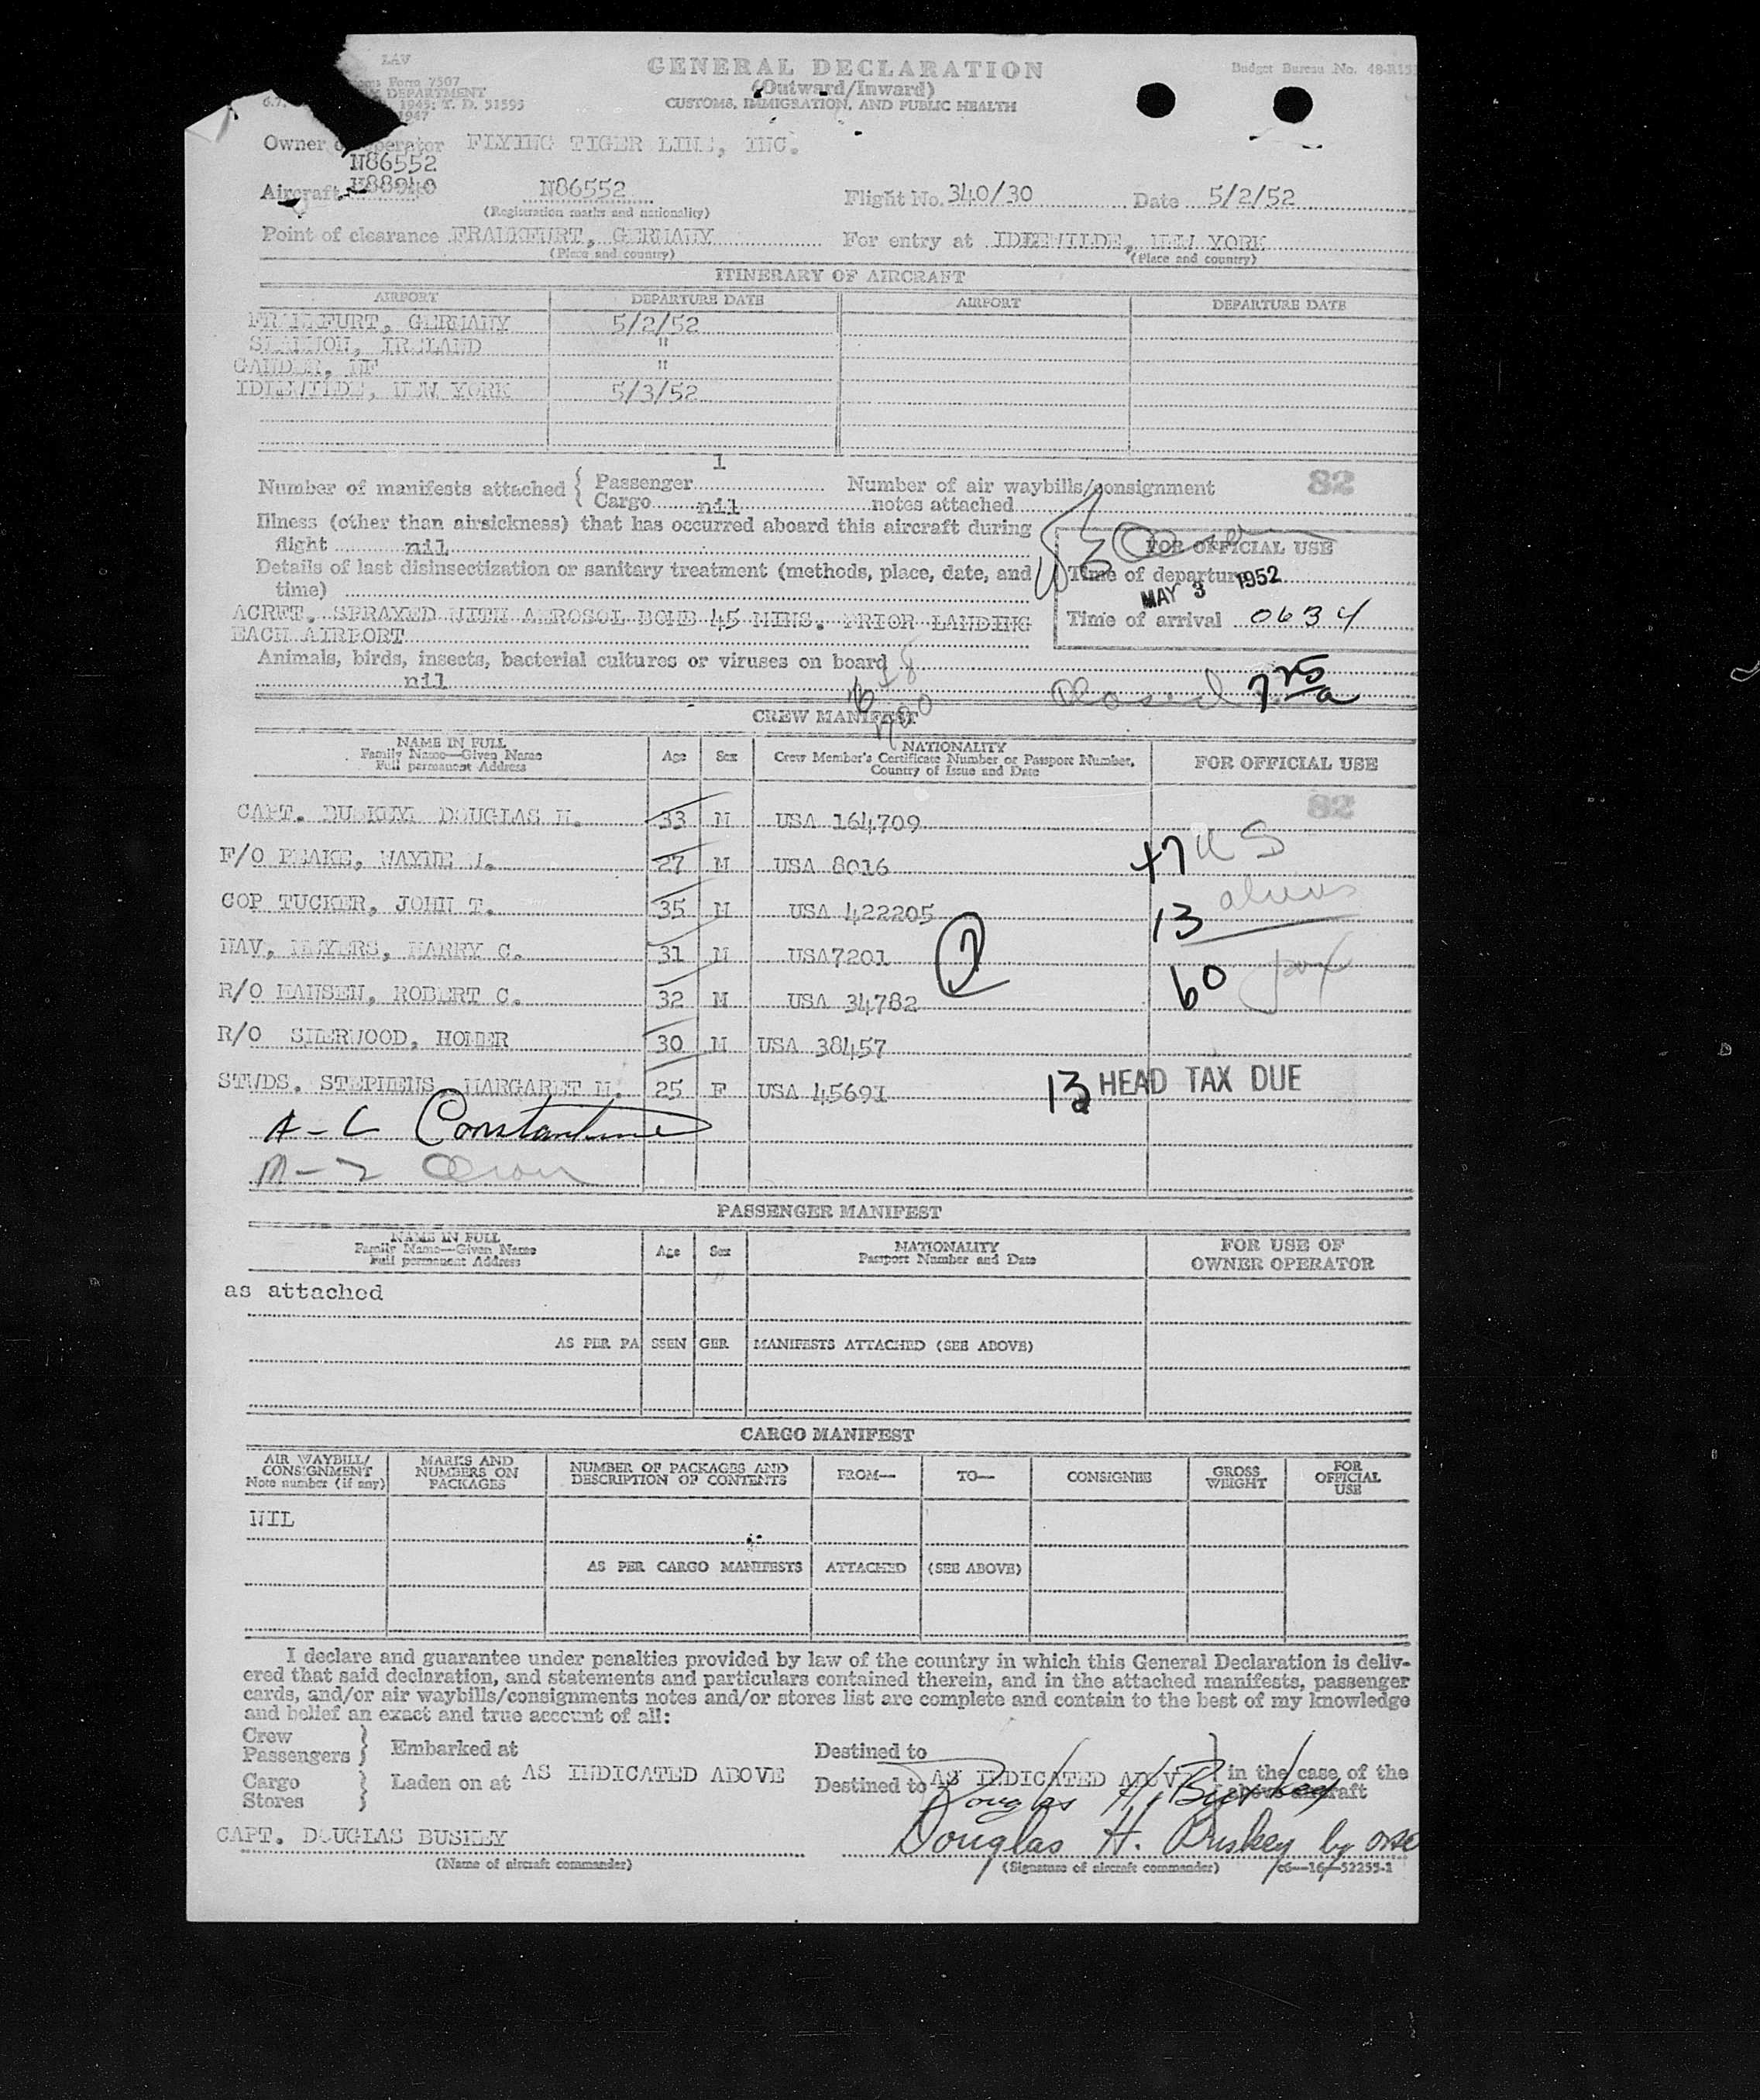 LAV
Form 7507
DEPARTMENT
1945; T. D. 51595
1947
GENERAL DECLARATION
(Outward/Inward)
CUSTOMS, IMMIGRATION, AND PUBLIC HEALTH
Budget Bureau No. 48-R15
Owner or operator FLYING TIGER LINE, INC.
N86552
Aircraft N88940 N86552 Flight No. 340/30 Date 5/2/52
(Registration marks and nationality)
Point of clearance FRANKFURT, GERMANY For entry at IDLEWILDE, NEW YORK
(Place and country) (Place and country)
ITINERARY OF AIRCRAFT
AIRPORT DEPARTURE DATE AIRPORT DEPARTURE DATE
FRANKFURT, GERMANY 5/2/52
SHANNON, IRELAND "
GANDER, NF "
IDLEWILDE, NEW YORK 5/3/52
Number of manifests attached { Passenger 1 Number of air waybills/consignment 82
Cargo nil notes attached
Illness (other than airsickness) that has occurred aboard this aircraft during
flight nil
FOR OFFICIAL USE
Details of last disinsectization or sanitary treatment (methods, place, date, and
time)
Time of departure
MAY 3 1952
Time of arrival 0634
ACRFT. SPRAYED WITH AEROSOL BOMB 45 MINS. PRIOR LANDING
EACH AIRPORT
Animals, birds, insects, bacterial cultures or viruses on board
nil
Closed 7 25 a
CREW MANIFEST
NAME IN FULL
Family Name—Given Name
Full permanent Address
Age Sex
NATIONALITY
Crew Member's Certificate Number or Passport Number,
Country of Issue and Date
FOR OFFICIAL USE
82
CAPT. BUSKEY, DOUGLAS H. 33 M USA 164709
F/O PEAKE, WAYNE W. 27 M USA 8016 47 US
COP TUCKER, JOHN T. 35 M USA 422205 13 aliens
NAV, MEYERS, HARRY C. 31 M USA7201 7
R/O HANSEN, ROBERT C. 32 M USA 34782 60 pax
R/O SHERWOOD, HOMER 30 M USA 38457
STWDS. STEPHENS, MARGARET M. 25 F USA 45691 13 HEAD TAX DUE
A-C Constantine
PASSENGER MANIFEST
NAME IN FULL
Family Name—Given Name
Full permanent Address
Age Sex
NATIONALITY
Passport Number and Date
FOR USE OF
OWNER OPERATOR
as attached
AS PER PASSENGER MANIFESTS ATTACHED (SEE ABOVE)
CARGO MANIFEST
AIR WAYBILL/
CONSIGNMENT
Note number (if any)
MARKS AND
NUMBERS ON
PACKAGES
NUMBER OF PACKAGES AND
DESCRIPTION OF CONTENTS
FROM— TO— CONSIGNEE
GROSS
WEIGHT
FOR
OFFICIAL
USE
NIL
AS PER CARGO MANIFESTS ATTACHED (SEE ABOVE)
I declare and guarantee under penalties provided by law of the country in which this General Declaration is deliv-
ered that said declaration, and statements and particulars contained therein, and in the attached manifests, passenger
cards, and/or air waybills/consignments notes and/or stores list are complete and contain to the best of my knowledge
and belief an exact and true account of all:
Crew
Passengers } Embarked at Destined to
Cargo
Stores } Laden on at AS INDICATED ABOVE Destined to AS INDICATED ABOVE } in the case of the
above aircraft
Douglas H. Buskey
CAPT. DOUGLAS BUSKEY Douglas H. Buskey by
(Name of aircraft commander) (Signature of aircraft commander) c6—16—52255-1